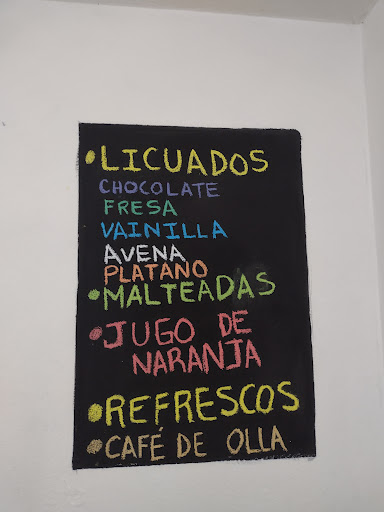 •LICUADOS
CHOCOLATE
FRESA
VAINILLA
AVENA
PLATANO
•MALTEADAS
•JUGO DE
NARANJA
•REFRESCOS
•CAFÉ DE OLLA